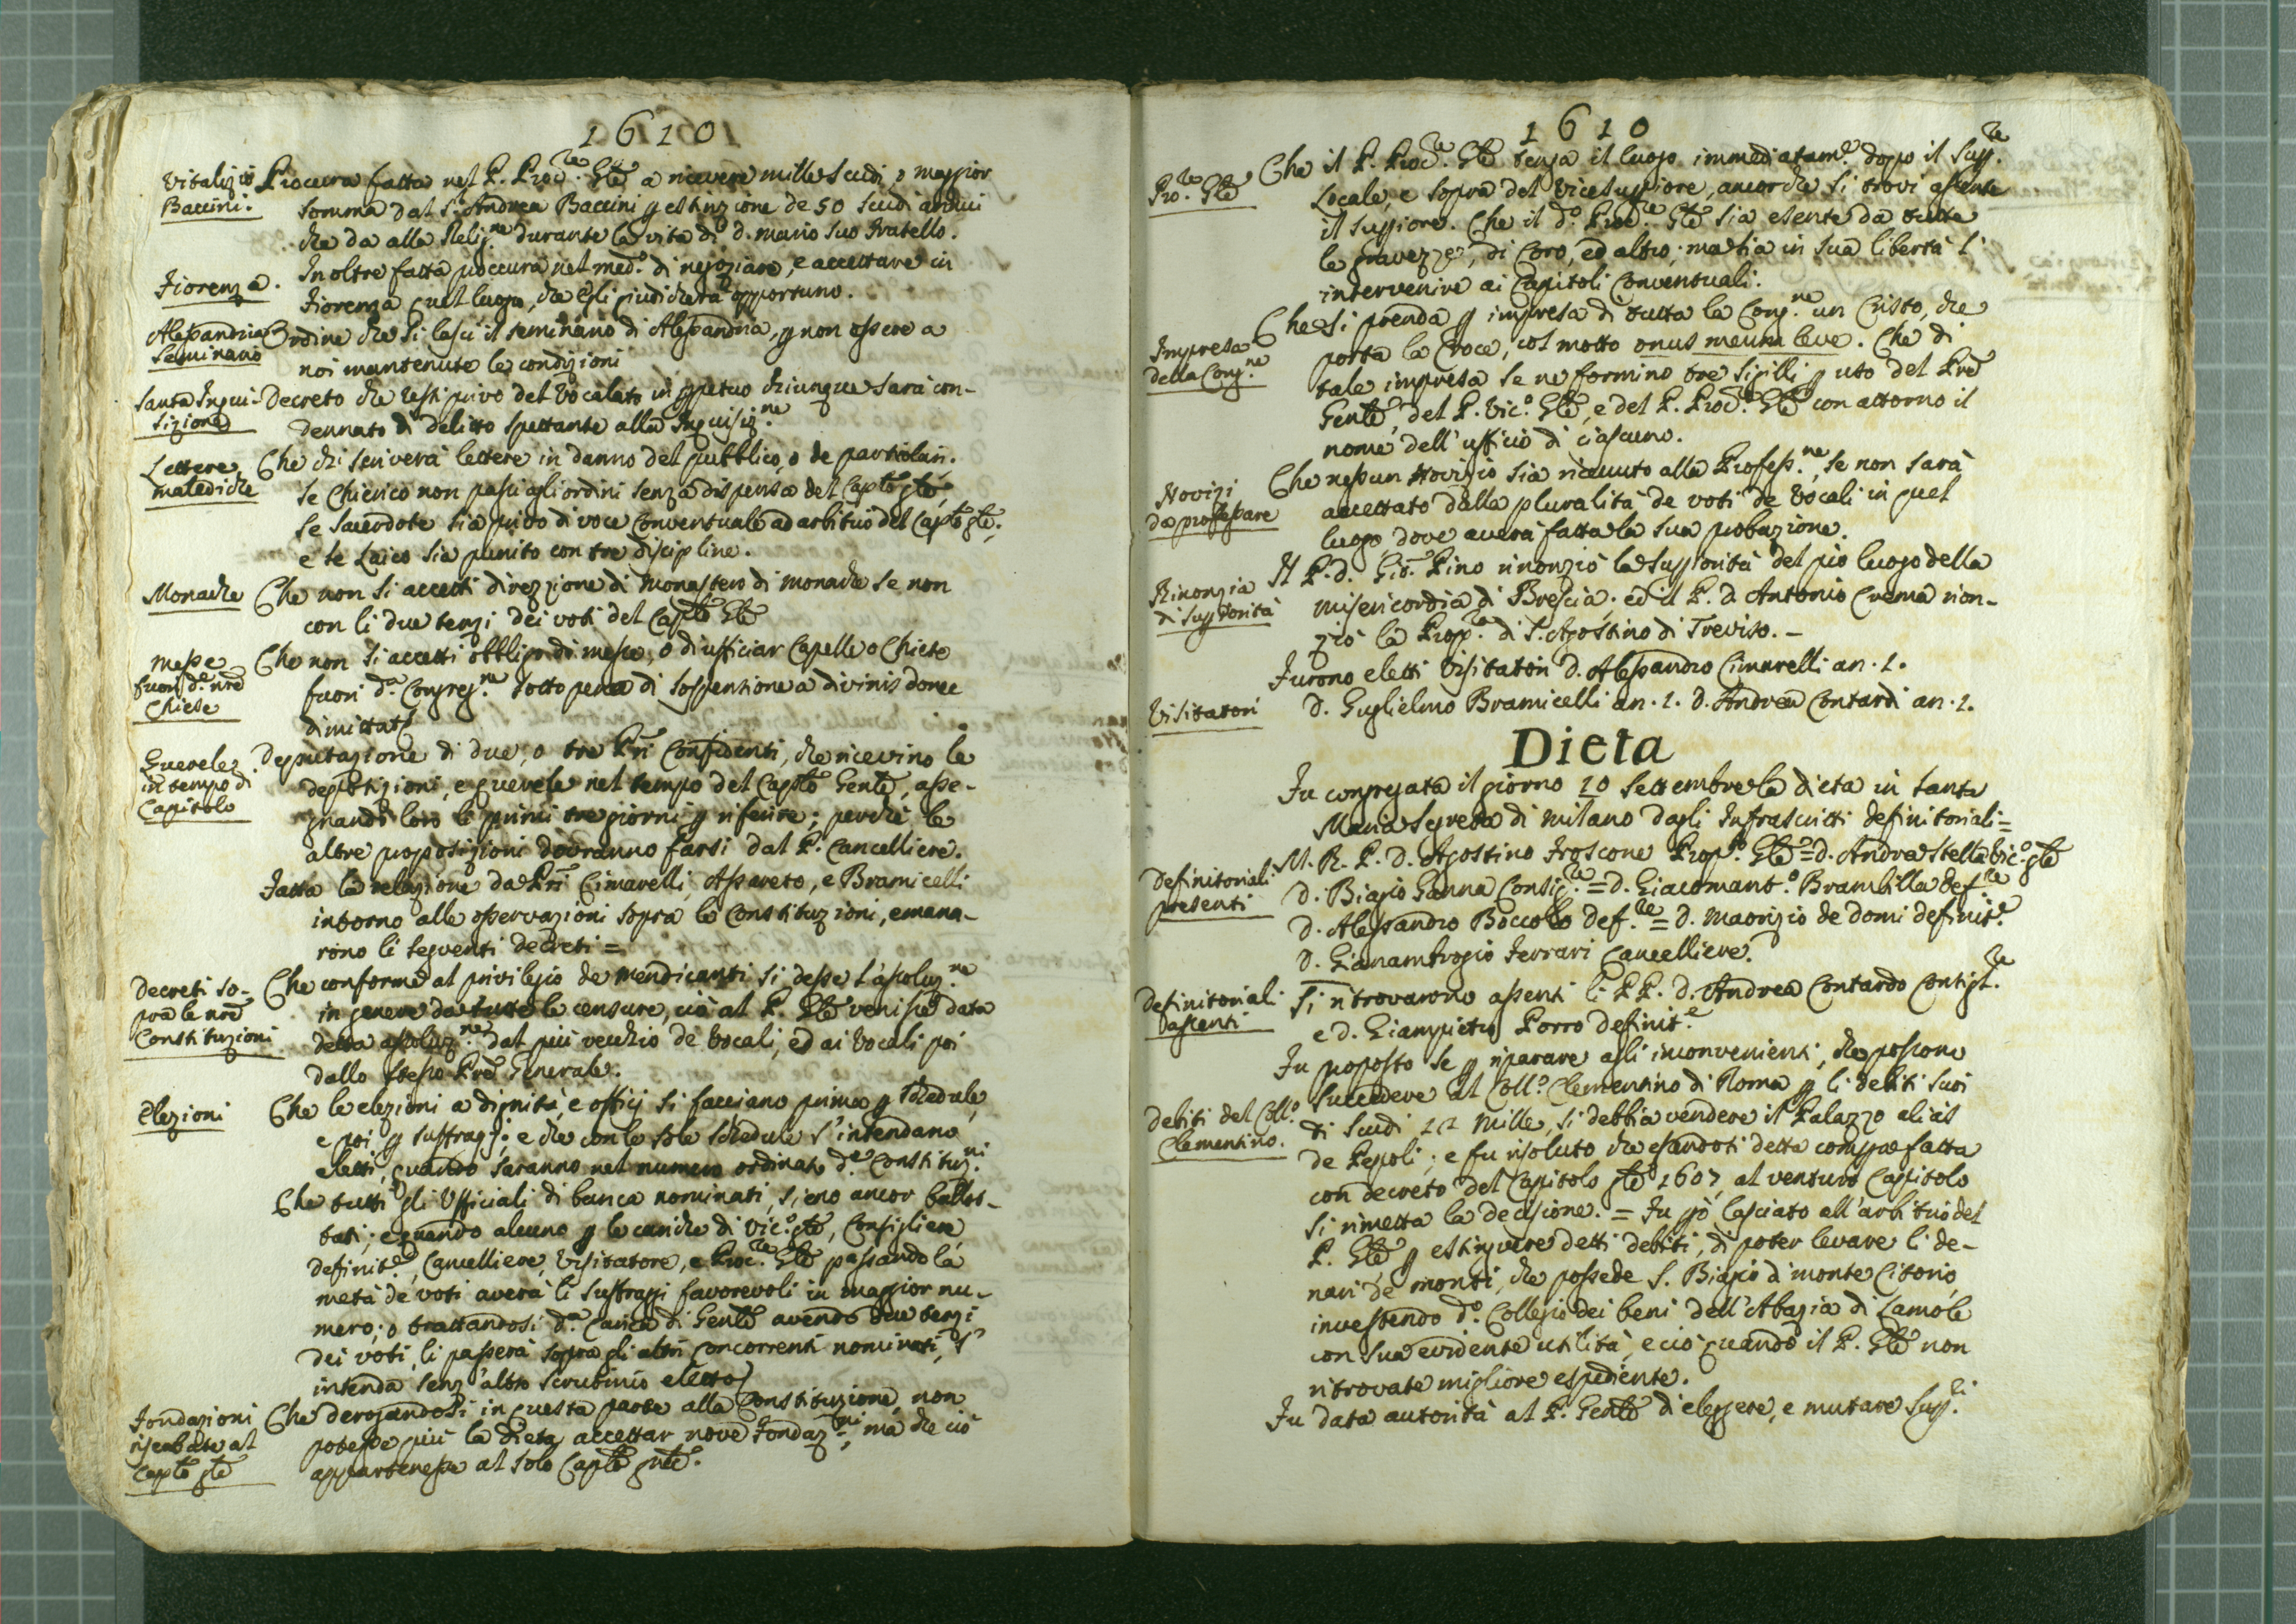 1610
Vitalizio
Baccini.
Procura fatta nel P. Proc.re Gñle a ricevere mille scudi, o maggior
somma dal S. Andrea Baccini p estinzione de 50 scudi annui
che da alla Relig.ne durante la vita di d. Mario suo fratello.
Fiorenza.
Inoltre fatta proccura nel med.o di negoziare, e accettare in
Fiorenza quel luogo, che egli giudicherà opportuno.
Alessandria
Seminario
Ordine che si lasci il seminario di Alessandria, p non essere a
noi mantenute le condizioni
Santa Inqui-
sizione
Decreto che resti privo del vocalato in ppetuo chiunque sarà con-
dennato di delitto spettante alla Inquisiz.ne
Lettere
malediche
Che chi scriverà lettere in danno del pubblico, o de particolari.
se Chierico non passi agli ordini senza dispensa del Caplo gle,
se Sacerdote sia privo di voce conventuale ad arbitrio del Caplo gle;
e se Laico sia punito con tre discipline.
Monache
Che non si accetti direzzione di Monastero di Monache se non
con li due terzi dei voti del Caplo Gle
Messe
fuori d.e nre
Chiese
Che non si accetti obbligo di messe, o di ufficiar Capelle o Chiese
fuori d.a Congreg.ne sotto pena di sospensione a divinis donec
dimittat
Querele
in tempo di
Capitolo
Deputazione di due, o tre Pri Confidenti, che ricevino le
deposizioni, e querele nel tempo del Capto Genle, asse-
gnando loro li primi tre giorni p riferire; perchè le
altre proposizioni dovranno farsi dal P. Cancelliere.
Fatta la relazione da Pri Cimarelli Assereto, e Bramicelli
intorno alle osservazioni sopra le Constituzioni, emana-
rono li seguenti decreti =
Decreti so-
pra le nre
Constituzioni
Che conforme al privilegio de Mendicanti si desse l'assoluz.ne
in genere da tutte le censure, cioè al P. Gle venisse data
detta assoluz.ne dal più vecchio de Vocali, ed ai Vocali poi
dallo stesso Pre Generale.
Elezioni
Che le elezioni a dignità, e officj si facciano prima p schedule,
e poi p suffragj; e che con le sole schedule s'intendano
eletti, quando saranno nel numero ordinato d.e Constituz.ni
Che tutti gli Ufficiali di banca nominati, sieno ancor ballot-
tati; e quando alcuno p le cariche di Vic.o gle, Consigliere,
definit.e, Cancelliere, Visitatore, e Proc.re Gle passando la
metà de voti averà li suffragj favorevoli in maggior nu-
mero; o trattandosi d.a Carica di Genle avendo due terzi
dei voti, li passerà sopra gli altri concorrenti nominati, s'
intenda senz'altro scrutinio eletto
Fondazioni
riserbate al
Caplo gle
Che derogandosi in questa parte alla Constituzione, non
potesse più la Dieta accettar nove Fondaz.ni, ma che ciò
appartenesse al solo Caplo gnle.
1610
Pro.re Gle
Che il P. Proc.re Gle tenga il luogo immediatam.e doppo il Supp.re
Locale, e sopra del Vicesuppiore, ancorchè si trovi assente
il suppiore. Che il d.o Proc.re Gle sia esente da tutte
le gravezze, di Coro, ed altro; ma stia in sua libertà l'
intervenire ai Capitoli Conventuali.
Impresa
della Cong.ne
Che si prenda p impresa di tutta la Cong.ne un Cristo, che
porta la Croce, col motto onus meum leve. Che di
tale impresa se ne formino tre sigilli p uso del Pre
Genle, del P. Vic.o Gle, e del P. Proc.re Gle con attorno il
nome dell'ufficio di ciascuno.
Novizi
da professare
Che nessun Novizio sia ricevuto alla Profess.ne, se non sarà
accettato dalla pluralità de voti de Vocali in quel
luogo dove averà fatta la sua probazione.
Rinonzia
di suppiorità
Il P. d. Gio. Pino rinonziò la suppiorità del pio luogo della
Misericordia di Brescia; ed il P. d. Antonio Crema rion-
ziò la Prop.ra di S. Agostino di Treviso.-
Visitatori
Furono eletti Visitatori D. Alessandro Cimarelli an. 1.
D. Guglielmo Bramicelli an. 1. D. Andrea Contardi an. 1.
Dieta
Fu congregata il giorno 10 settembre la dieta in santa
Maria Segreta di Milano dagli infrascritti definitoriali =
Definitoriali
presenti
M. R. P. D. Agostino Froscone Prep.o Gle = D. Andrea Stella Vic.o gle
D. Biagio Ganna Consig.re = D. Giacomant.o Brambilla def.re
D. Alessandro Boccolo Def.re = D. Maorizio de Domi definit.e
D. Gianambrogio Ferrari Cancelliere.
Definitoriali
assenti
Si ritrovarono assenti li PP. D. Andrea Contardo Consigl.re
e D. Giampietro Porro definit.e
Debiti del Coll.o
Clementino.
Fu proposto se p riparare agli inconvenienti, che possono
succedere al Coll.o Clementino di Roma p li debiti suoi
di scudi 12 mille, si debbia vendere il Palazzo aliàs
de Pepoli; e fu risoluto che essendosi detta compra fatta
con decreto del Capitolo gle 1607, al venturo Capitolo
si rimetta la decisione. = Fu pò lasciato all'arbitrio del
P. Gle, p estinguere detti debiti, di poter levare li de-
nari de monti, che possede S. Biagio di monte Citorio,
investendo d.o Collegio dei beni dell'Abazia di Lamole
con sua evidente utilità, e ciò quando il P. Gle non
ritrovate migliore espediente.
Fu data autorità al P. Genle di eleggere, e mutare Supp.ri